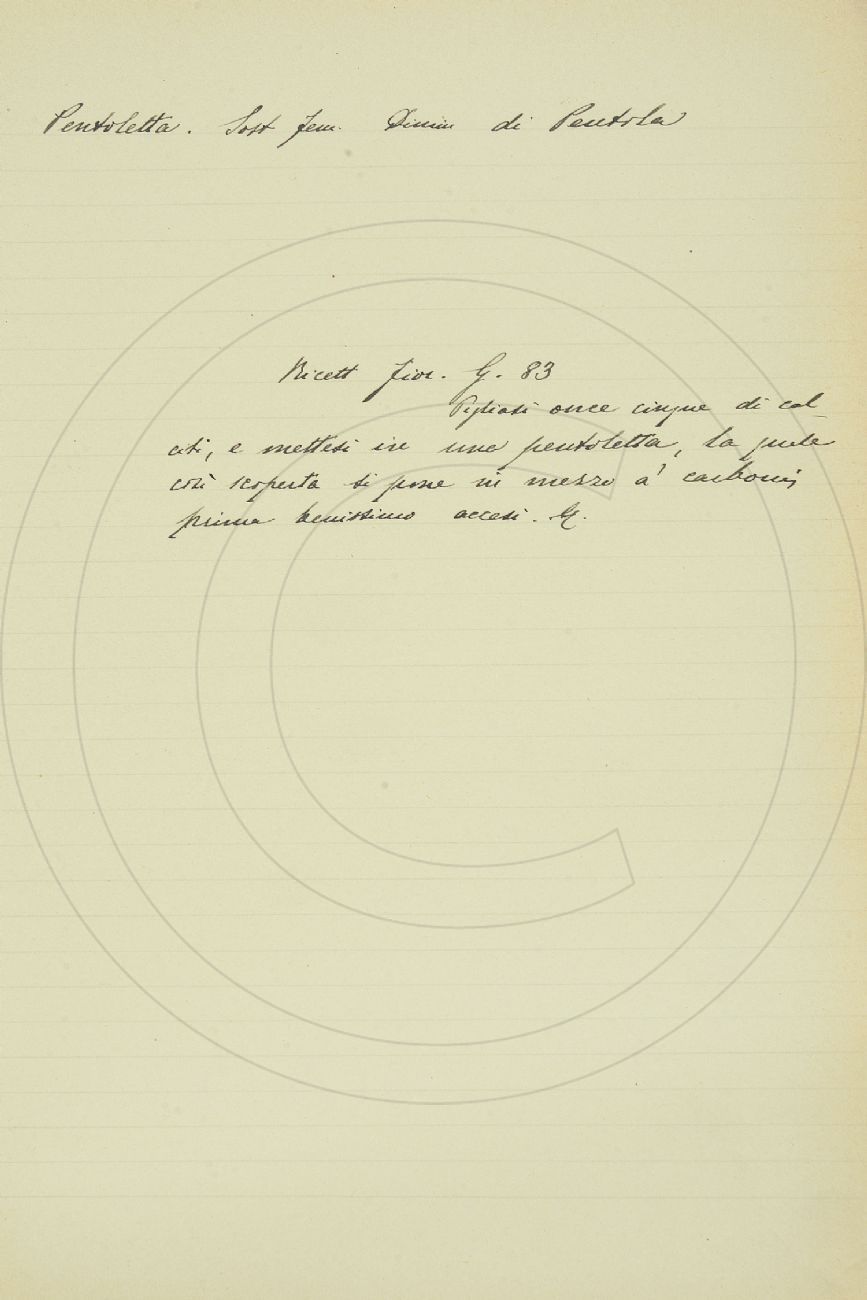 Pentoletta. Sost fem. Dimin di Pentola
Ricett fior. G. 83
Pigliasi once cinque di cal
citi, e mettesi in una pentoletta, la quale
così scoperta si pone in mezzo a' carboni
prima benissimo accesi. G.